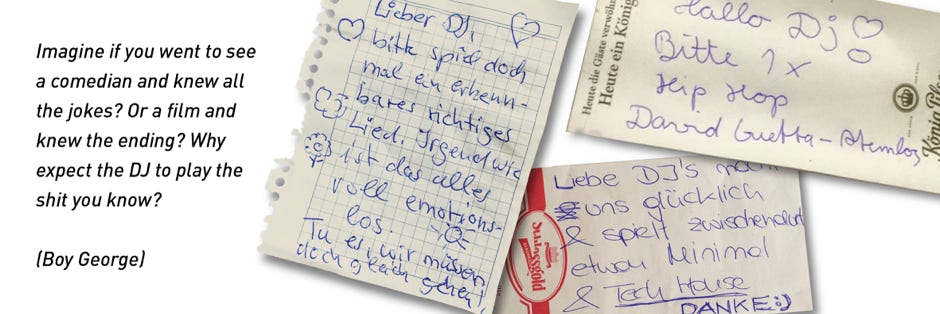 Imagine if you went to see
a comedian and knew all
the jokes? Or a film and
knew the ending? Why
expect the DJ to play the
shit you know?
(Boy George)
Lieber DJ,
bitte spiel doch
mal ein erkenn-
bares richtiges
Lied. Irgendwie
ist das alles
voll emotions-
los.
Tu es, wir müssen
doch gleich gehen!
Heute die Gäste verwöhn
Heute ein König
Hallo Dj
Bitte 1x
Hip Hop
David Guetta - Atemlos
König Pils
Liebe DJ's mach
uns glücklich
& spielt zwischendurch
etwas Minimal
& Tech House
DANKE :)